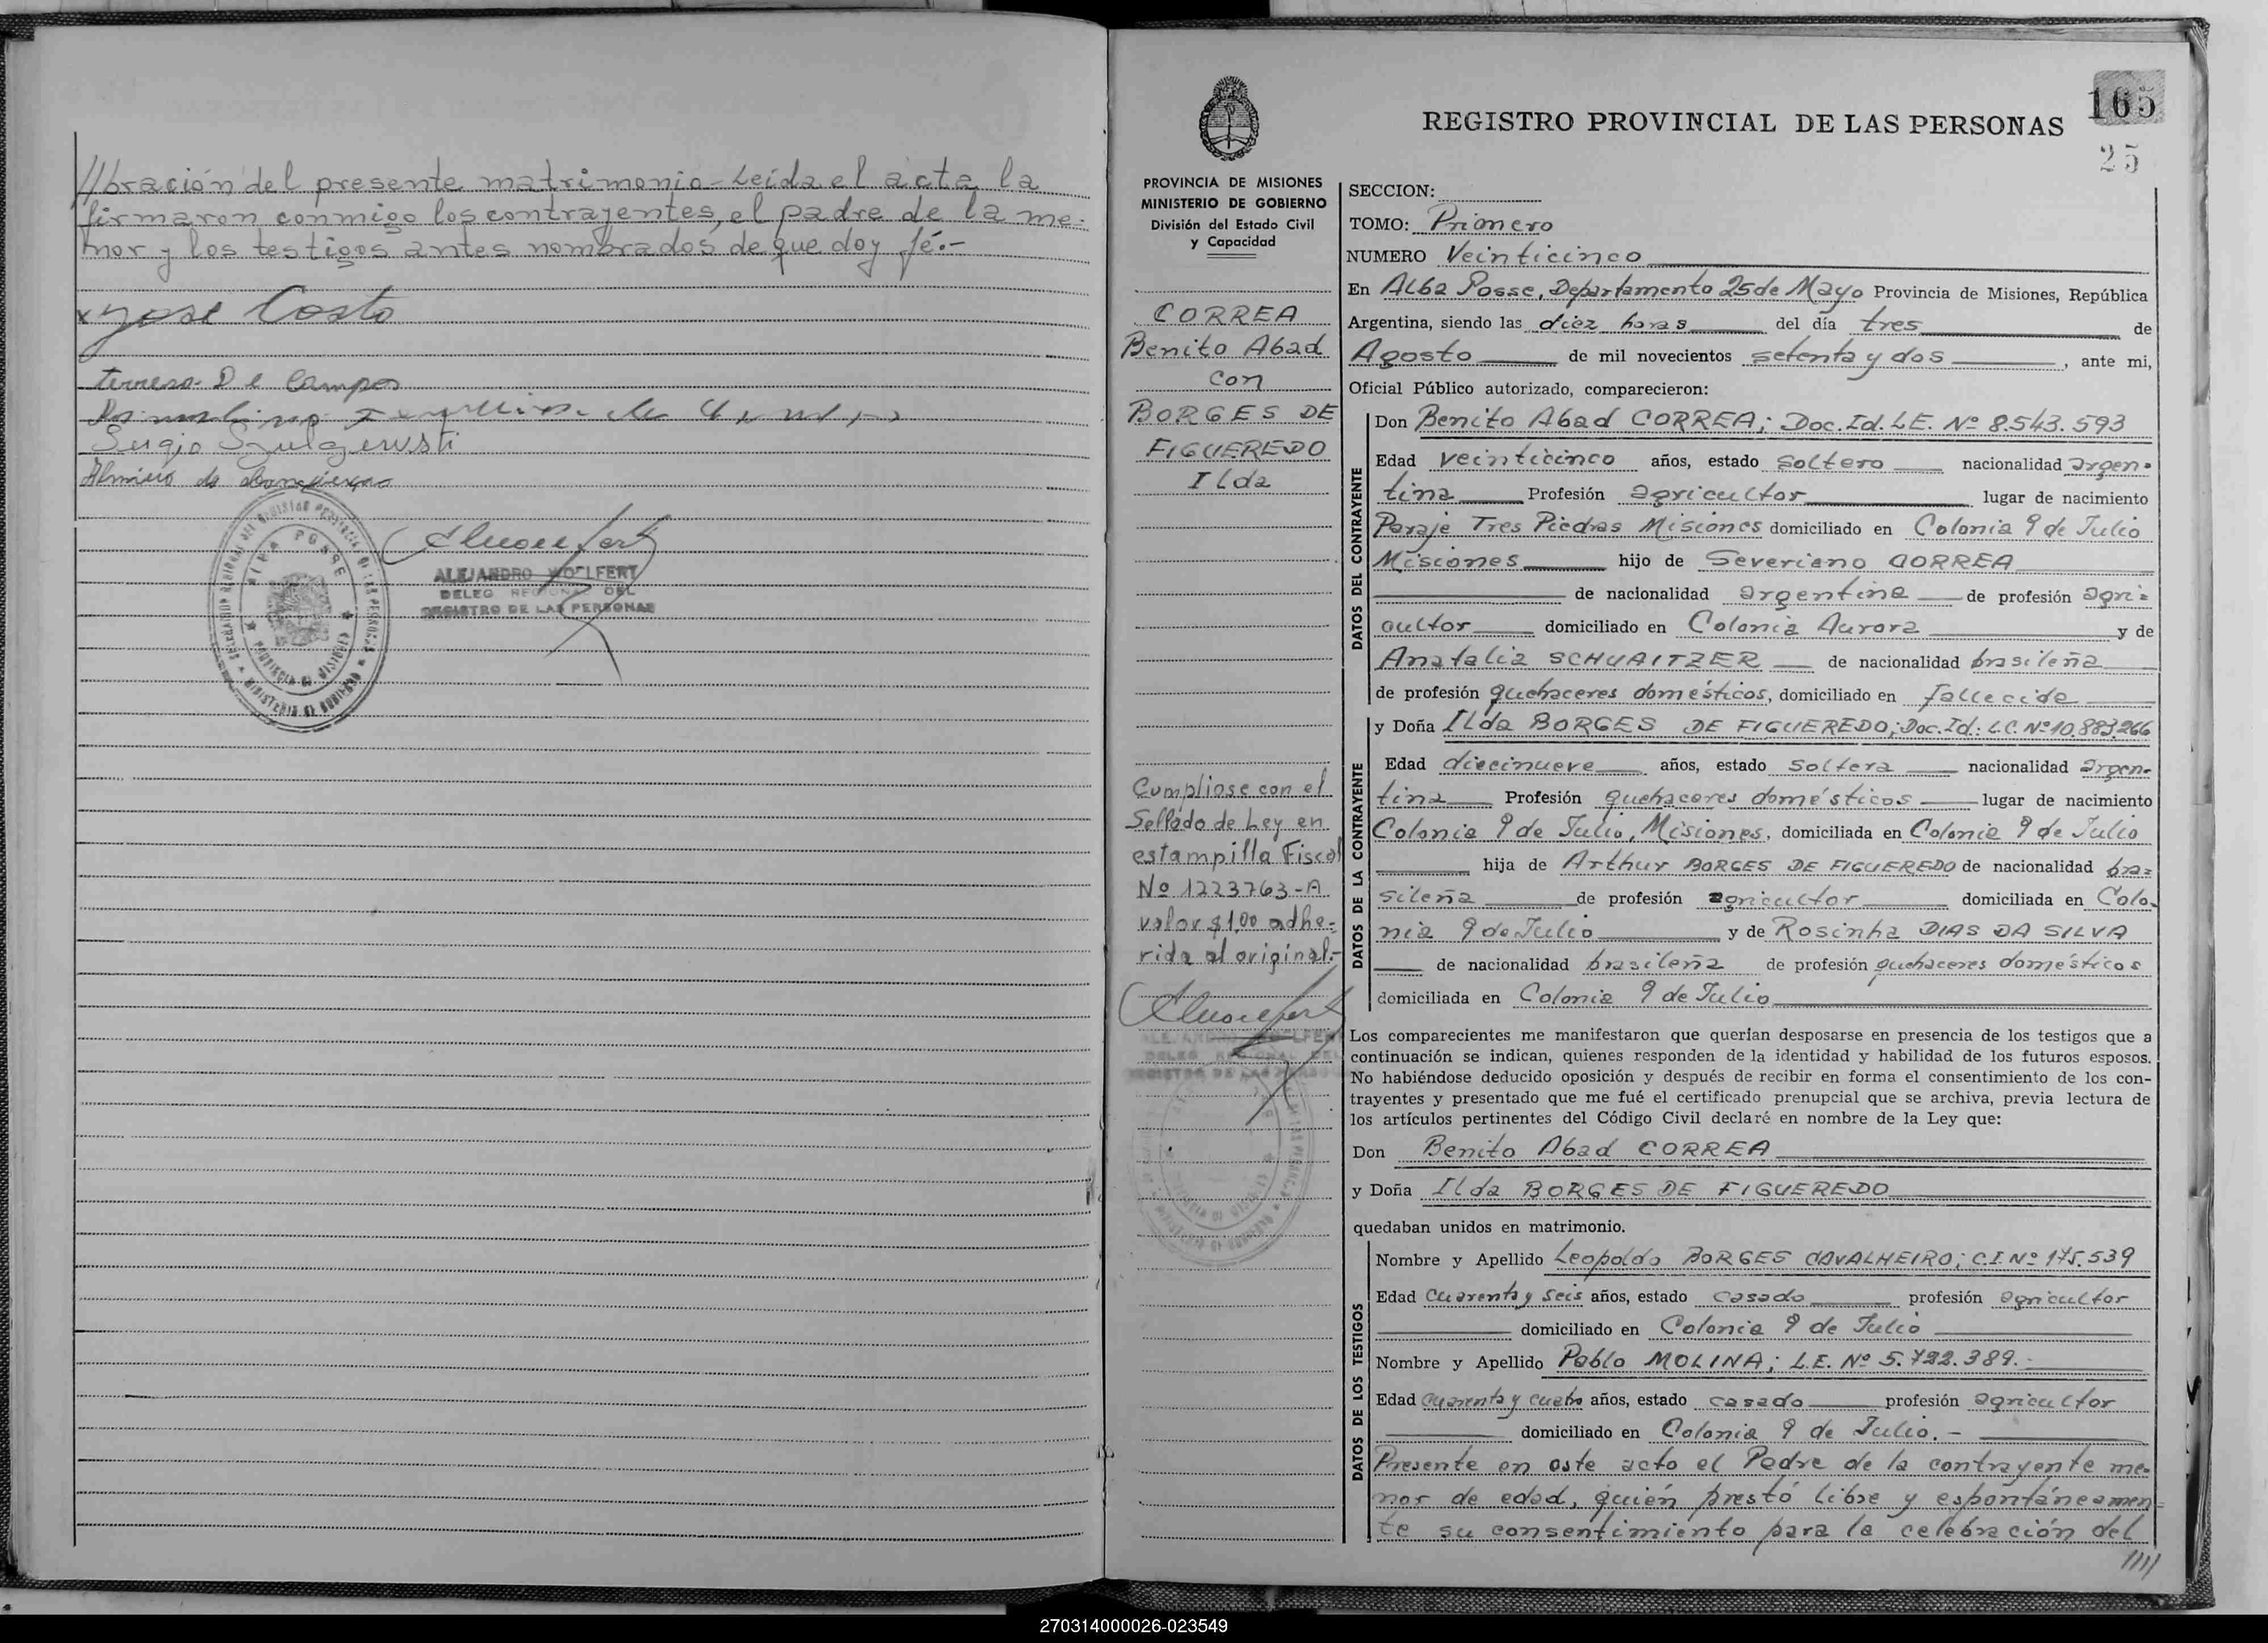 ////bración del presente matrimonio-Leída el acta la
firmaron conmigo los contrayentes, el padre de la me-
nor y los testigos antes nombrados de que doy fé.-
x José Costa
terresa De Campos
Sergio
ALEJANDRO WOLFERT
DELEG REGIONAL DEL
REGISTRO DE LAS PERSONAS
ALBA POSSE
165
25
REGISTRO PROVINCIAL DE LAS PERSONAS
PROVINCIA DE MISIONES
MINISTERIO DE GOBIERNO
División del Estado Civil
y Capacidad
CORREA
Benito Abad
con
BORGES DE
FIGUEREDO
Ilda
Cumpliose con el
Sellado de Ley en
estampilla Fiscal
Nº 1223763-A
valor $1,00 adhe-
rida al original.-
ALEJANDRO WOLFERT
DELEG REGIONAL DEL
REGISTRO DE LAS PERSONAS
SECCION:
TOMO: Primero
NUMERO Veinticinco
En Alba Posse, Departamento 25 de Mayo Provincia de Misiones, República
Argentina, siendo las diez horas del día tres de
Agosto de mil novecientos setenta y dos, ante mi,
Oficial Público autorizado, comparecieron:
DATOS DEL CONTRAYENTE
Don Benito Abad CORREA; Doc. Id. L.E. Nº 8.543.593
Edad veinticinco años, estado soltero nacionalidad argen-
tina Profesión agricultor lugar de nacimiento
Paraje Tres Piedras Misiones domiciliado en Colonia 9 de Julio
Misiones hijo de Severiano CORREA
de nacionalidad argentina de profesión agri-
cultor domiciliado en Colonia Aurora y de
Anatalia SCHUAITZER de nacionalidad brasileña
de profesión quehaceres domésticos, domiciliado en fallecida
DATOS DE LA CONTRAYENTE
y Doña Ilda BORGES DE FIGUEREDO; Doc. Id.: L.C. Nº 10.883.266
Edad diecinueve años, estado soltera nacionalidad argen-
tina Profesión quehaceres domésticos lugar de nacimiento
Colonia 9 de Julio, Misiones, domiciliada en Colonia 9 de Julio
hija de Arthur BORGES DE FIGUEREDO de nacionalidad bra-
sileña de profesión agricultor domiciliada en Colo-
nia 9 de Julio y de Rosinha DIAS DA SILVA
de nacionalidad brasileña de profesión quehaceres domésticos
domiciliada en Colonia 9 de Julio
Los comparecientes me manifestaron que querían desposarse en presencia de los testigos que a
continuación se indican, quienes responden de la identidad y habilidad de los futuros esposos.
No habiéndose deducido oposición y después de recibir en forma el consentimiento de los con-
trayentes y presentado que me fué el certificado prenupcial que se archiva, previa lectura de
los artículos pertinentes del Código Civil declaré en nombre de la Ley que:
Don Benito Abad CORREA
y Doña Ilda BORGES DE FIGUEREDO
quedaban unidos en matrimonio.
DATOS DE LOS TESTIGOS
Nombre y Apellido Leopoldo BORGES CAVALHEIRO; C.I. Nº 175.539
Edad Cuarenta y seis años, estado casado profesión agricultor
domiciliado en Colonia 9 de Julio
Nombre y Apellido Pablo MOLINA; L.E. Nº 5.722.389.-
Edad cuarenta y cuatro años, estado casado profesión agricultor
domiciliado en Colonia 9 de Julio.-
Presente en este acto el Padre de la contrayente me-
nor de edad, quién prestó libre y espontáneamen-
te su consentimiento para la celebración del
////
270314000026-023549